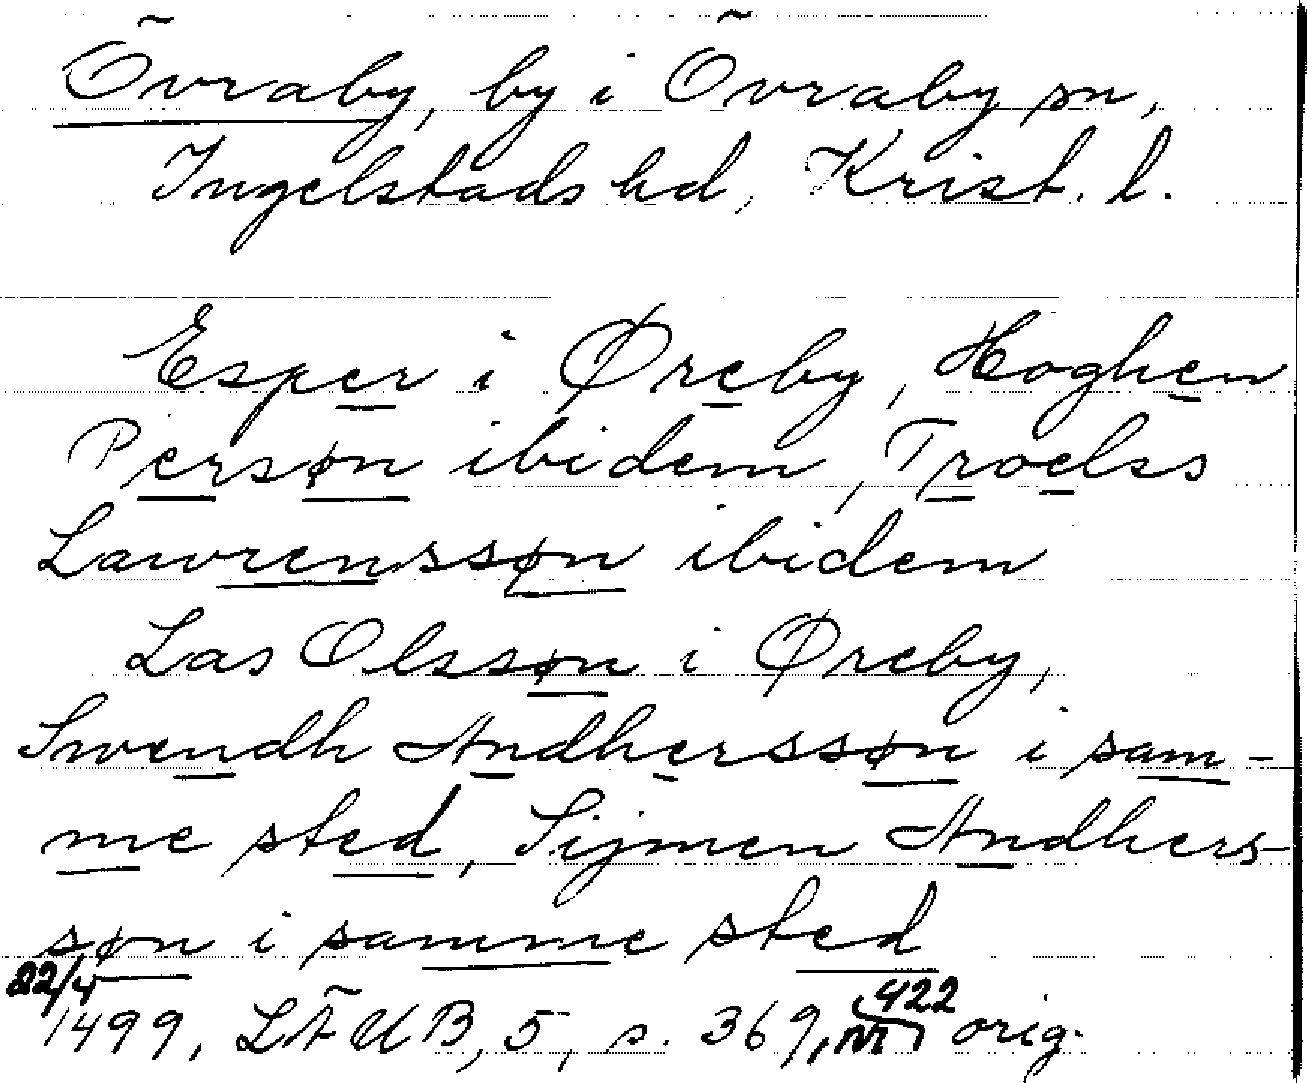 Övraby, by i Övraby sn,
Ingelstads hd, Krist. l.
Esper i Øreby, Hoghen
Persøn ibidem, Troelss
Lawrenssøn ibidem
Las Olssøn i Øreby,
Swendh Andherssøn i sam-
me sted, Sijmen Andhers-
søn i samme sted
22/4
1499, LÄUB, 5, s. 369, nr 422 orig.